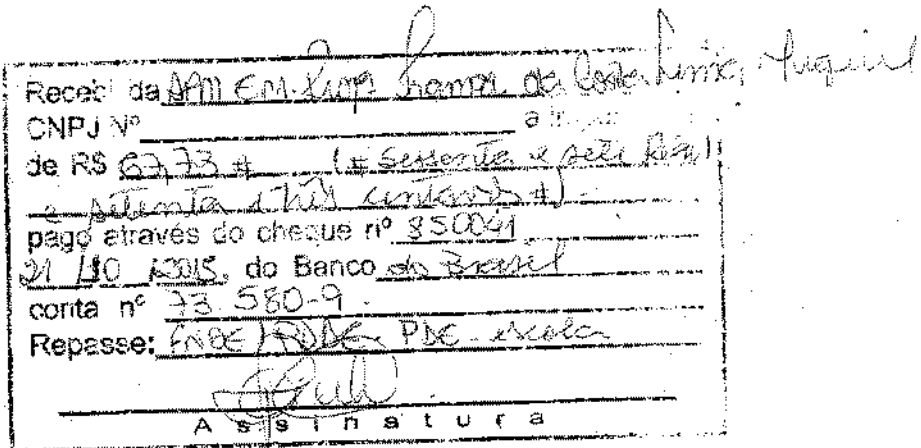 Recebi da APM EM. Profª Ramos da Costa Lima
CNPJ Nº a
de R$ 67,73 # (# Sessenta e sete Reais
e setenta e três centavos #)
pago através do cheque nº 850041
21 / 10 / 2015, do Banco do Brasil
conta nº 73.580-9.
Repasse: FNDE / PDDE PDE - escola
Assinatura